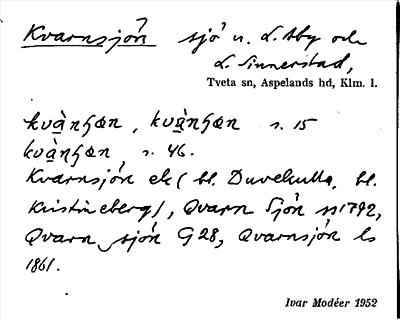 Kvarnsjön sjö n. L. Aby och
L. Sinnerstad,
Tveta sn, Aspelands hd, Klm. l.
s. 15
s. 46.
Kvarnsjön ek ( bl. Duvekulla, bl.
Kristineberg), Qvarn Sjön 1792,
Qvarn sjön G 28, Qvarnsjön ls
1861.
Ivar Modéer 1952